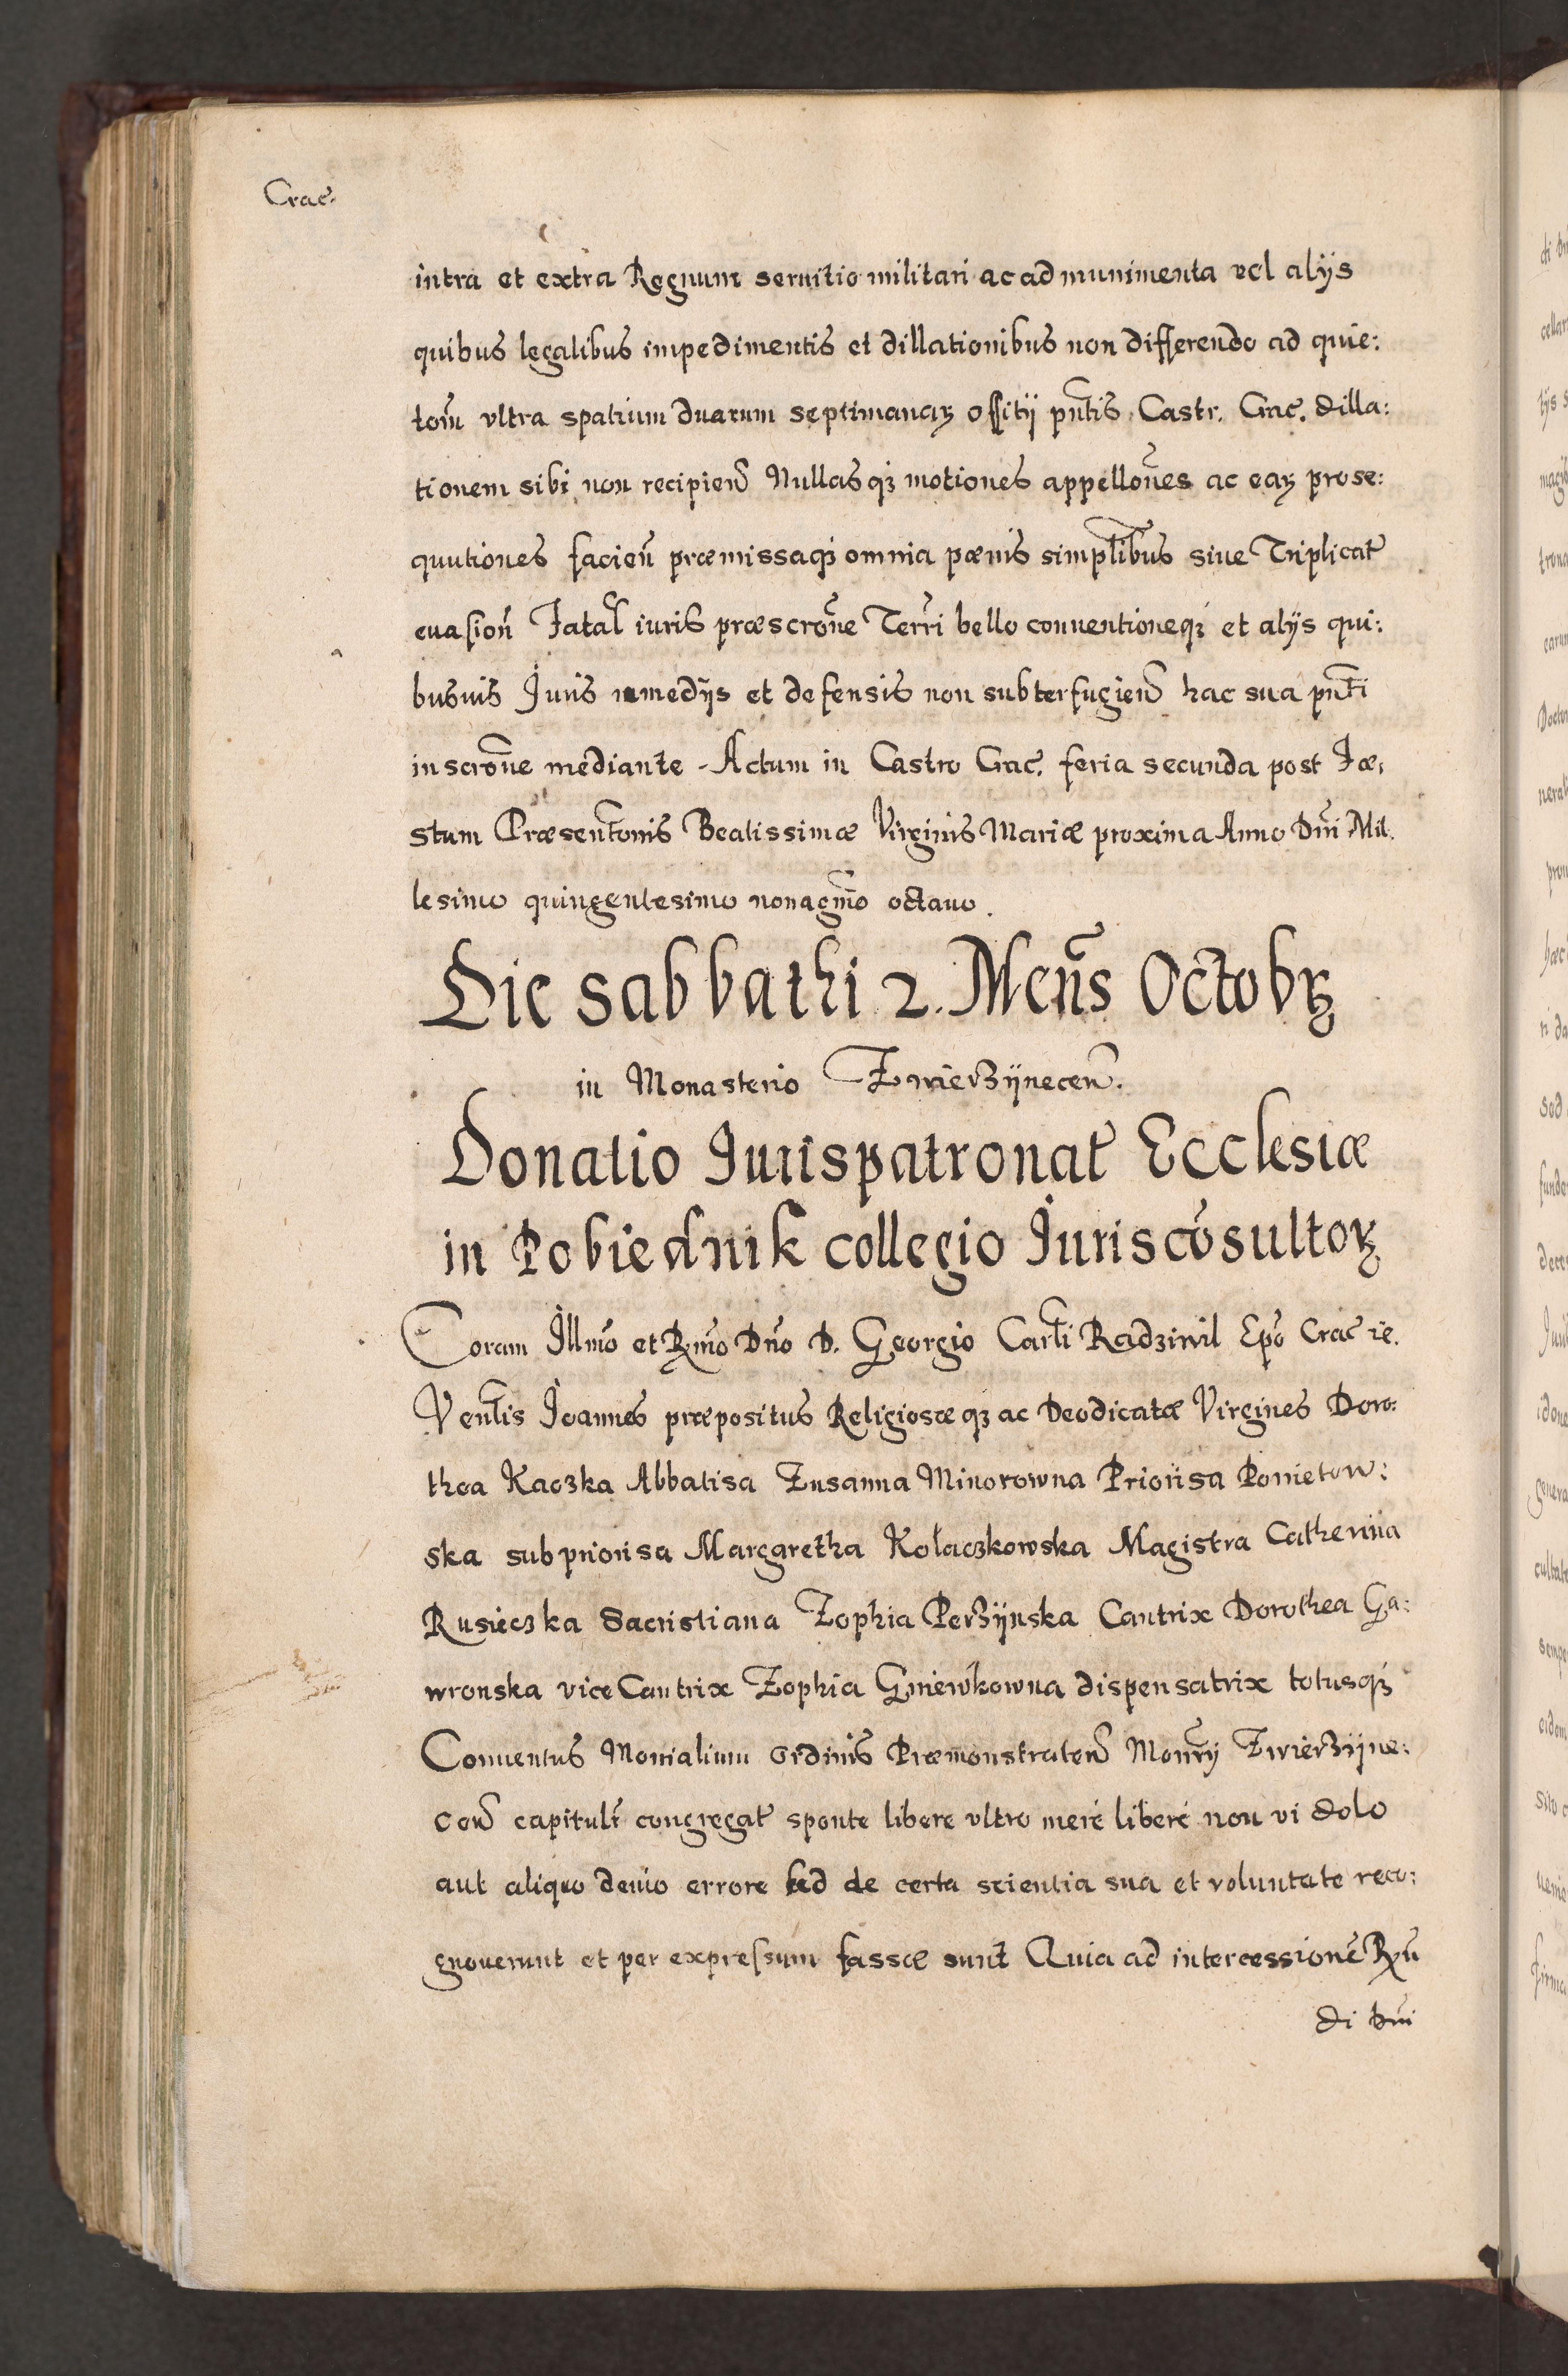 Crac.
intra et extra Regnum seruitio militari ac ad munimenta vel alijs
quibus legalibus impedimentis et dillationibus non differendo ad quie:
tom̃ vltra spatium duarum septimanarꝫ offitij pñtis Castr. Crac. dilla:
tionem sibi non recipieñ Nullasqꝫ motiones appelloñes ac earꝫ prose:
quutiones facieñ præmissaqꝫ omnia pœnis simpltibus siue Triplicat̃
euasioñ Fatal̃ iuris præscroñe Terri bello conuentioneqꝫ et alijs qui:
busuis Juris remedijs et defensis non subterfugieñ hac sua pñti
inscroñe mediante. Actum in Castro Crac. feria secunda post Fæ:
stum Præsentõnis Beatissimæ Virginis Mariæ proxima Anno Dñi Mil.
lesimo quingentesimo nonagmõ octauo.
Die Sabbathi 2. Meñs Octobrꝫ
in Monasterio Zwierzÿneceñ.
Donatio Jurispatronat̃ Ecclesiæ
in Pobiednik collegio Juriscõsultorꝫ
Coram Jllmõ et Rꝫmõ Dño D. Georgio Carli Radziwil Epõ Crac ie.
Ventlis Joannes præpositus Religiosæqꝫ ac Deodicatæ Virgines Doro:
thea Kaczka Abbatisa Zusanna Minorowna Priorisa Ponietow:
ska subpriorisa Margaretha Kołaczkowska Magistra Catherina
Rusieczka Sacristiana Zophia Perzÿnska Cantrix Dorothea Ga:
wronska vice Cantrix Zophia Gniewkowna dispensatrix totusqꝫ
Conuentus Monialium ordinis Præmonstrateñ Monrÿ Zwierzÿne:
ceñ capitulr̃ congregat̃ sponte libere vltro meré liberé non vi dolo
aut aliquo deuio errore sed de certa scientia sua et voluntate reco:
gnouerunt et per expressum fassæ sunt Quia ad intercessionẽ Rꝫũ
di Dñi